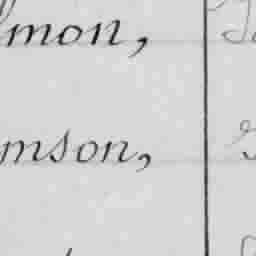 mon,
mson,